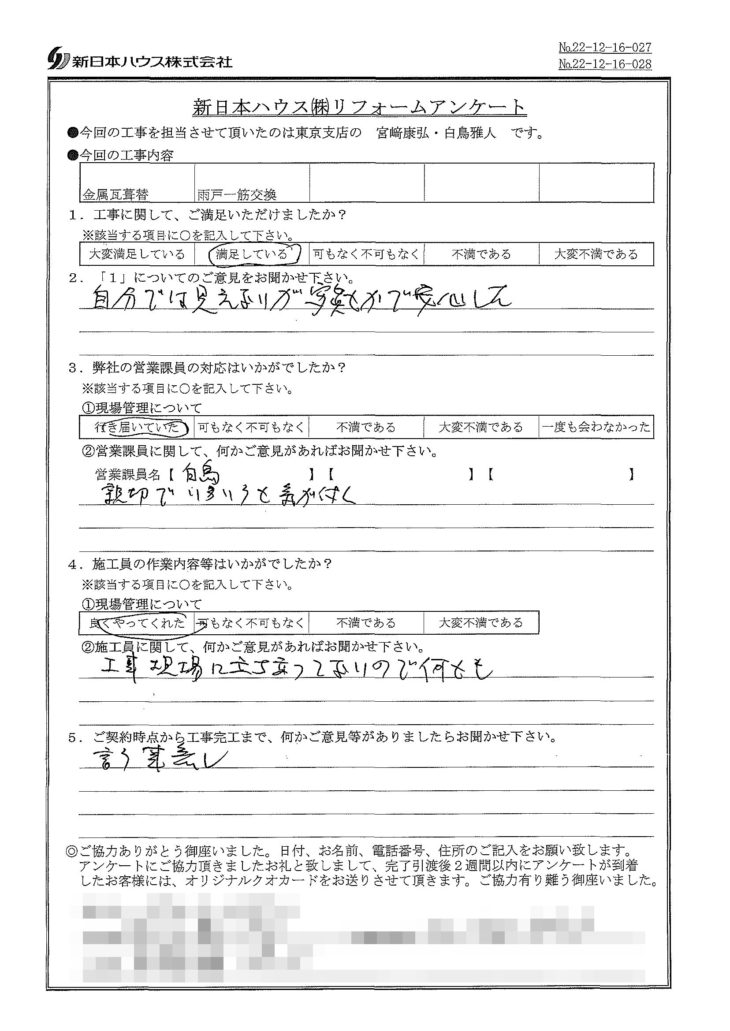 新日本ハウス株式会社
№22-12-16-027
№22-12-16-028
新日本ハウス㈱リフォームアンケート
●今回の工事を担当させて頂いたのは東京支店の 宮﨑康弘・白鳥雅人 です。
●今回の工事内容
金属瓦葺替 雨戸一筋交換
1．工事に関して、ご満足いただけましたか？
※該当する項目に○を記入して下さい。
大変満足している 満足している 可もなく不可もなく 不満である 大変不満である
2．「1」についてのご意見をお聞かせ下さい。
自分では見えないが写真とかで安心した
3．弊社の営業課員の対応はいかがでしたか？
※該当する項目に○を記入して下さい。
①現場管理について
行き届いていた 可もなく不可もなく 不満である 大変不満である 一度も会わなかった
②営業課員に関して、何かご意見があればお聞かせ下さい。
営業課員名【 白鳥 】【 】【 】
親切でいろいろと気が付く
4．施工員の作業内容等はいかがでしたか？
※該当する項目に○を記入して下さい。
①現場管理について
良くやってくれた 可もなく不可もなく 不満である 大変不満である
②施工員に関して、何かご意見があればお聞かせ下さい。
工事現場に立ち会ってないので何とも
5．ご契約時点から工事完工まで、何かご意見等がありましたらお聞かせ下さい。
言う事無し
◎ご協力ありがとう御座いました。日付、お名前、電話番号、住所のご記入をお願い致します。
アンケートにご協力頂きましたお礼と致しまして、完了引渡後2週間以内にアンケートが到着
したお客様には、オリジナルクオカードをお送りさせて頂きます。ご協力有り難う御座いました。